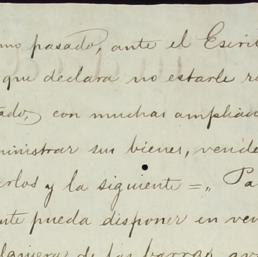 mo pasado, ante el Escrib
que declara no estarle r
ado, con muchas ampliac
ministrar sus bienes, vende
erlos y la siguiente =„ Pa
nte pueda disponer en ven
de las barras